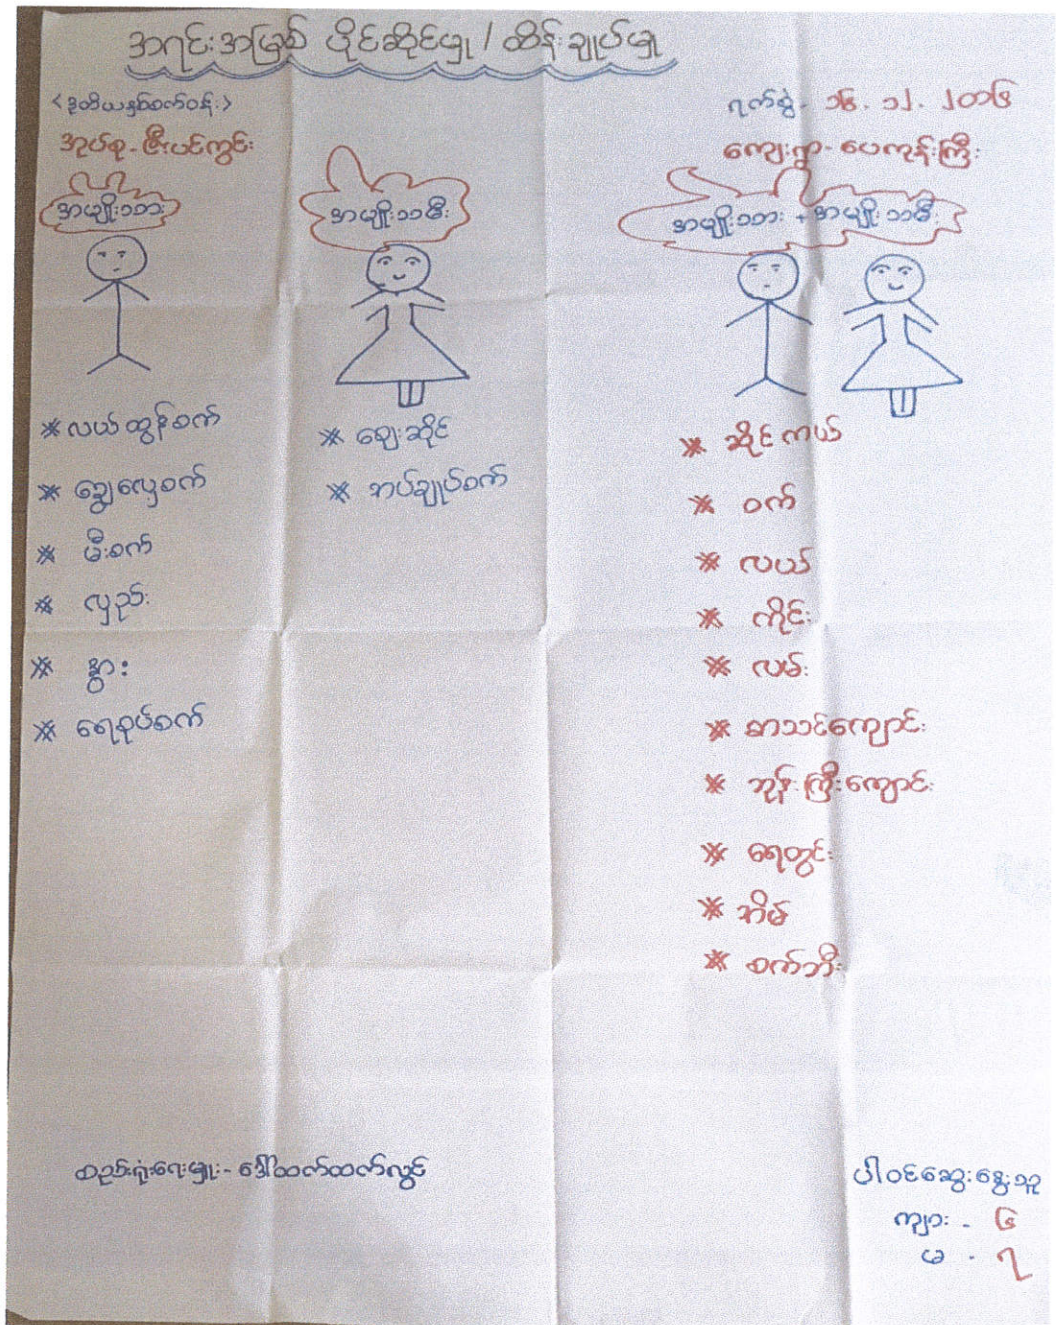 အရင်းအမြစ် ပိုင်ဆိုင်မှု / ထိန်းချုပ်မှု
<ဒုတိယနှစ်စက်ဝန်း>
ရက်စွဲ - ၁၆. ၁၂. ၂၀၁၆
အုပ်စု - ဇီးပင်ကွင်း
ကျေးရွာ - ပေကုန်းကြီး
အမျိုးသား
အမျိုးသမီး
အမျိုးသား + အမျိုးသမီး
* လယ်ထွန်စက်
* ခြွေလှေ့စက်
* မီးစက်
* လှည်း
* နွား
* ရေစုပ်စက်
* ဈေးဆိုင်
* အပ်ချုပ်စက်
* ဆိုင်ကယ်
* ဝက်
* လယ်
* ကိုင်း
* လမ်း
* စာသင်ကျောင်း
* ဘုန်းကြီးကျောင်း
* ရေတွင်း
* အိမ်
* စက်ဘီး
စည်းရုံးရေးမှုး - ဒေါ်ထက်ထက်လွင်
ပါဝင်ဆွေးနွေးသူ
ကျား - ၆
မ - ၇